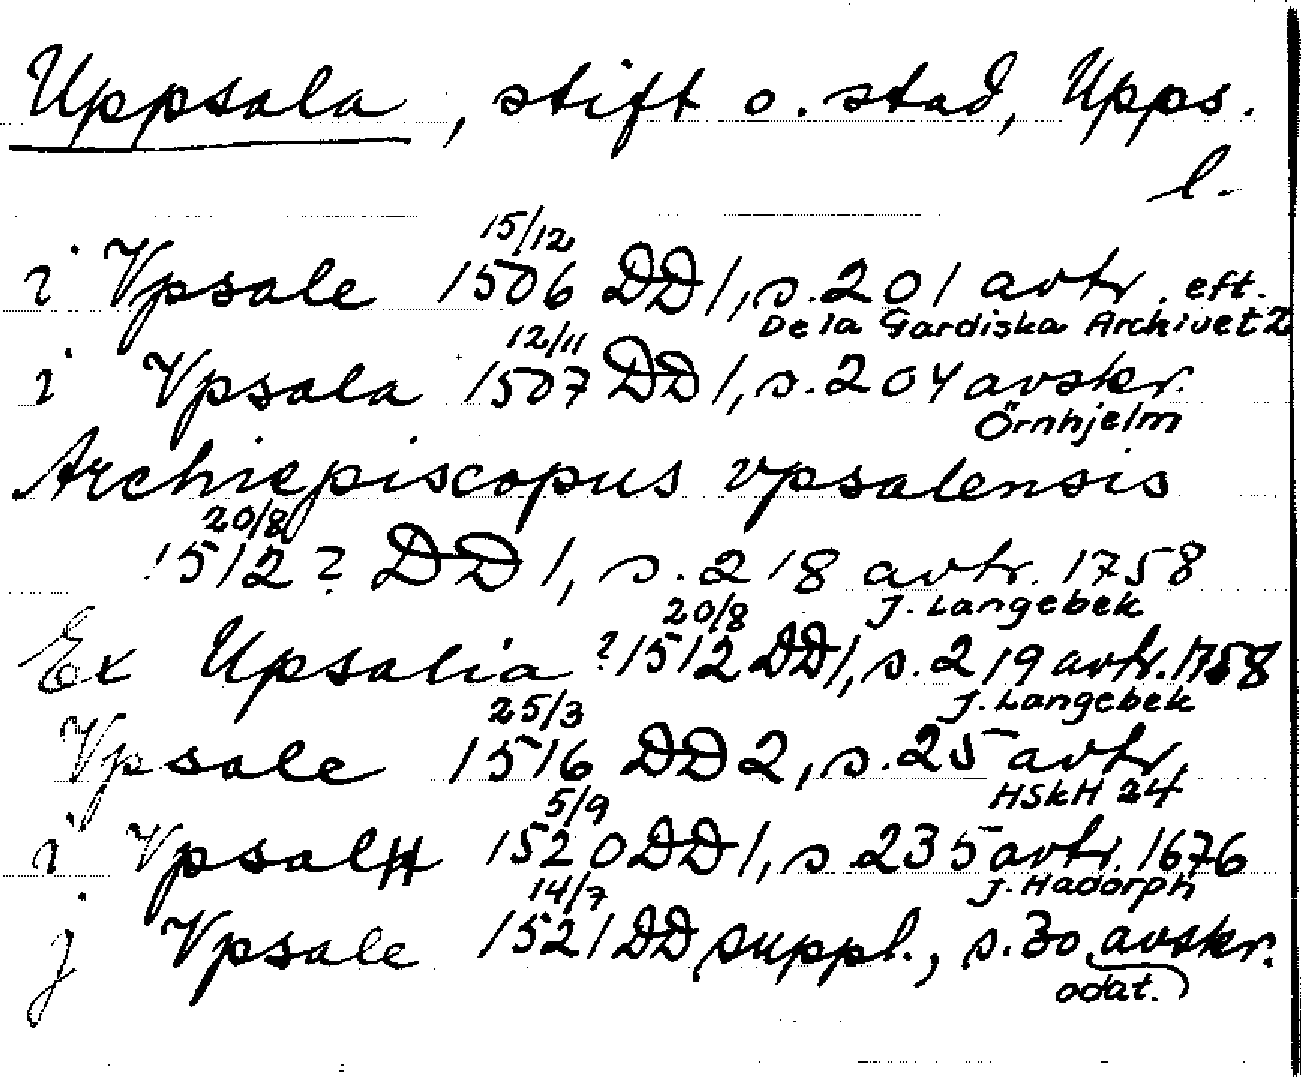 Uppsala, stift o. stad, Upps.
l.
i Vpsale 15/12 1506 DD 1, s. 201 avtr. eft.
De la Gardiska Archivet 2
i Vpsala 12/11 1507 DD 1, s. 204 avskr.
Örnhjelm
Archiepiscopus vpsalensis
20/8
1512? DD 1, s. 218 avtr. 1758
J. Langebek
Ex Upsalia ? 20/8 1512 DD 1, s. 219 avtr. 1758
J. Langebek
Vpsale 25/3 1516 DD 2, s. 25 avtr.
HSkH 24
i Vpsal 5/9 1520 DD 1, s. 235 avtr. 1676
J. Hadorph
j Vpsale 14/7 1521 DD suppl., s. 30 avskr.
odat.